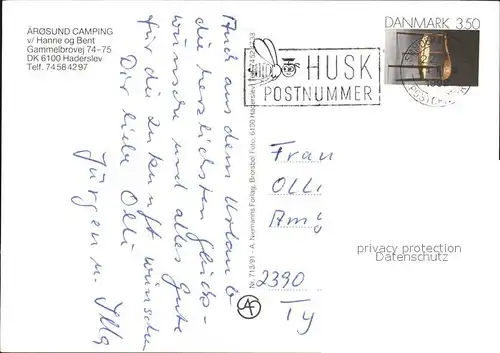 ÅRØSUND CAMPING
v/ Hanne og Bent
Gammelbrovej 74-75
DK 6100 Haderslev
Telf. 74 58 42 97
Auch aus dem Urlaub
die herzlichsten Glücks-
wünsche und alles Gute
für die Zukunft wünschen
Dir liebe Olli
Jürgen u. Illa
Nr. 713/91 - A. Nyemanns Forlag, Brorsbøl Foto, 6100 Haderslev
DANMARK 3.50
HUSK
POSTNUMMER
Frau
OLLI
Am
2390
privacy protection
Datenschutz